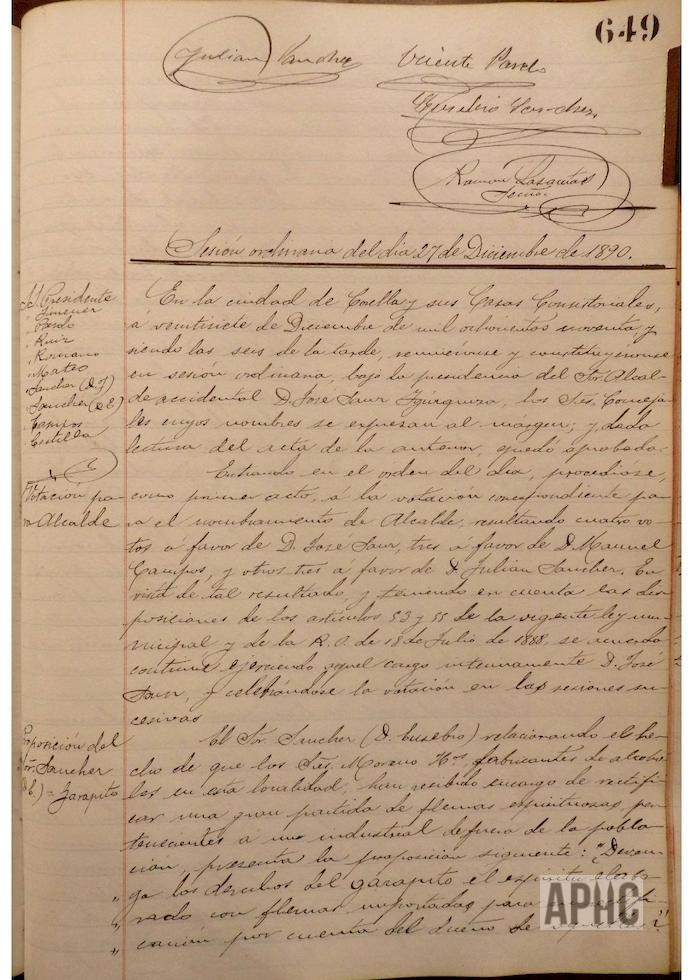 649
Julian Sanchez Vicente Pardo
Eusebio Sanchez
Ramon
Sesión ordinaria del dia 27 de Diciembre de 1890.
Presidente
Jimenez
Pardo
Ruiz
Romano
Mateo
Sanchez (D. J)
Sanchez (D. E)
Campos
Castilla
En la ciudad de Coella y sus Casas Consistoriales,
á veintisiete de Diciembre de mil ochocientos noventa, y
siendo las seis de la tarde, reuniéronse y constituyéronse
en sesión ordinaria, bajo la presidencia del Sr. Alcal-
de accidental D. José Saur los Sres. Conceja-
les cuyos nombres se expresan al márgen; y dada
lectura del acta de la anterior, quedó aprobada.
Votación pa-
ra Alcalde
Entrando en el orden del dia, procedióse,
como primer acto, á la votación correspondiente pa-
ra el nombramiento de Alcalde, resultando cuatro vo-
tos á favor de D. José Saur, tres á favor de D. Manuel
Campos, y otros tres á favor de D. Julian Sanchez. En
vista de tal resultado, y teniendo en cuenta las dis-
posiciones de los artículos 53 y 55 de la vigente ley mu-
nicipal y de la R. O. de 18 de Julio de 1888, se acuerda
continue ejerciendo aquel cargo interinamente D. José
Saur, y celebrándose la votación en las sesiones su-
cesivas
Proposición del
Sr. Sanchez
(D. E.) = Garapito
El Sr. Sanchez (D. Eusebio) relacionando el he-
cho de que los Sres. Moreno Hos. fabricantes de alcoho-
les en esta localidad, han recibido encargo de rectifi-
car una gran partida de flemas espirituosas, per-
tenecientes á un industrial de fuera de la pobla-
cion, presenta la proposición siguiente: "Deven-
" ga los derechos del garapito el espíritu elabo-
" rado con flemas importadas para
" cación por cuenta del dueño de
APHC